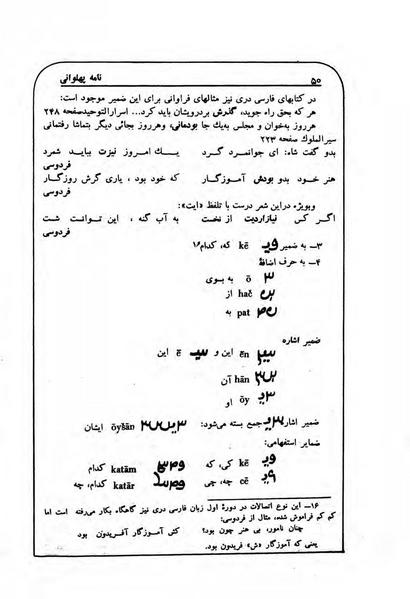 ۵۰ نامه پهلوانی
در کتابهای فارسی دری نیز مثالهای فراوانی برای این ضمیر موجود است:
هر که بحق راه جوید، گذرش بردرویشان باید کرد... اسرارالتوحیدصفحه ۲۴۸
هرروز به‌خوان و مجلس به‌یك جا بودمانی، وهرروز بجائی دیگر بتماشا رفتمانی
سیرالملوك صفحه ۲۲۳
بدو گفت شاه: ای جوانمرد گرد یــك امروز نیزت بباید شمرد
فردوسی
هنر خـود بدو بودش آموزگار که خود بود ، یاری گرش روزگار
وبویژه دراین شعر درست با تلفظ «ایت»:
اگر کس نیازاردیت از نخست به آب گنه ، این توانت شت
فردوسی
۳ــ به ضمیر kē که، کدام۱۶
۴ــ به حرف اضافه
ō به بوی
hač از
pat به
ضمیر اشاره
ēn این و ē این
hān آن
ōy او
ضمیر اشاره جمع بسته می‌شود: ōyšān ایشان
ضمایر استفهامی:
kē کی، که katām کدام
cē چه، چی katār کدام، چه
۱۶ــ این نوع اتصالات در دورهٔ اول زبان فارسی دری نیز گاهگاه بکار می‌رفته است اما
کم کم فراموش شده، مثال از فردوسی:
چنان نامور، بی هنر چون بود؟ کش آموزگار آفریدون بود
یعنی که آموزگار «ش» فریدون بود.